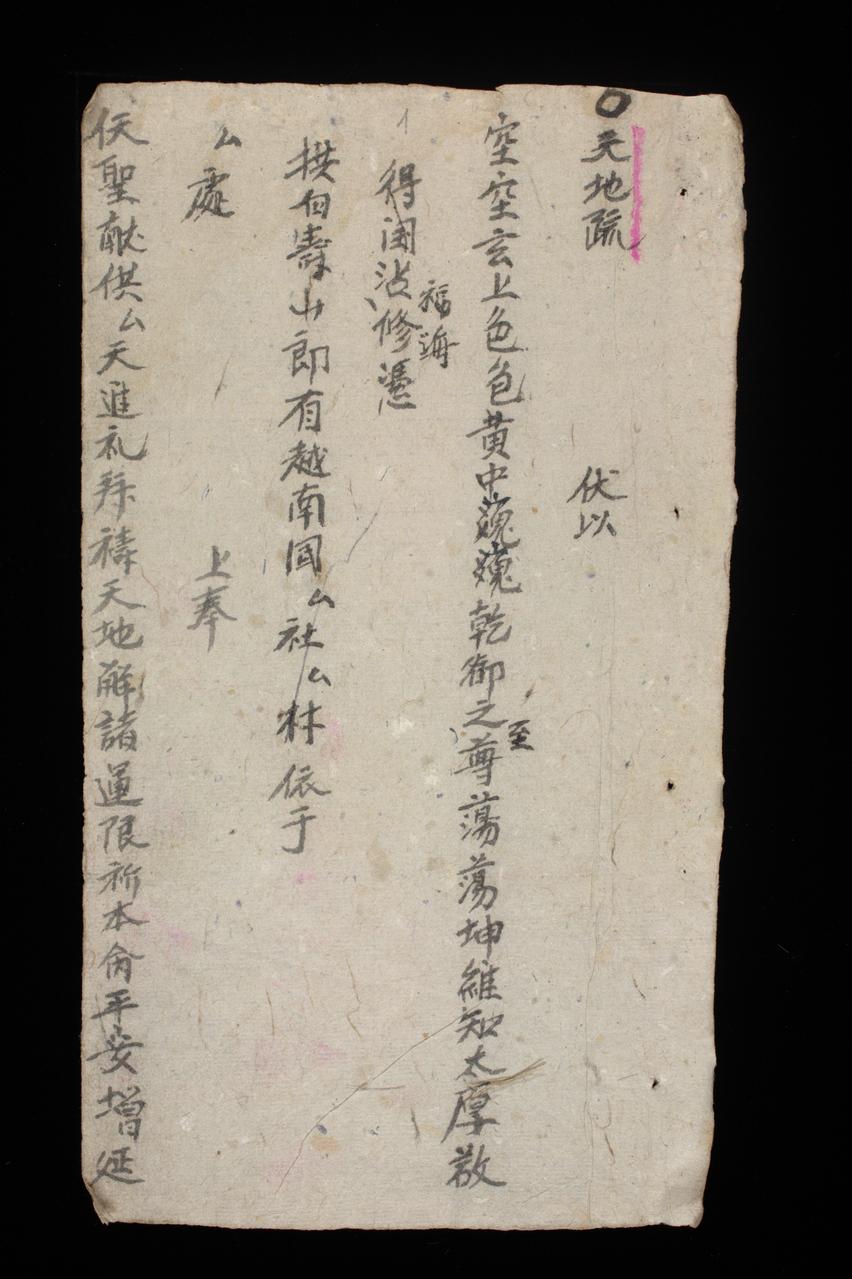 天地疏
伏以
空空玄上色色黃中巍巍乾御之至尊蕩蕩坤維知太厚敬
得困沾福海修憑
拱向壽山郎有越南国厶社厶村依于
厶處
上奉
仸聖献供厶天進礼拜禱天地解諸運限祈本命平安增延